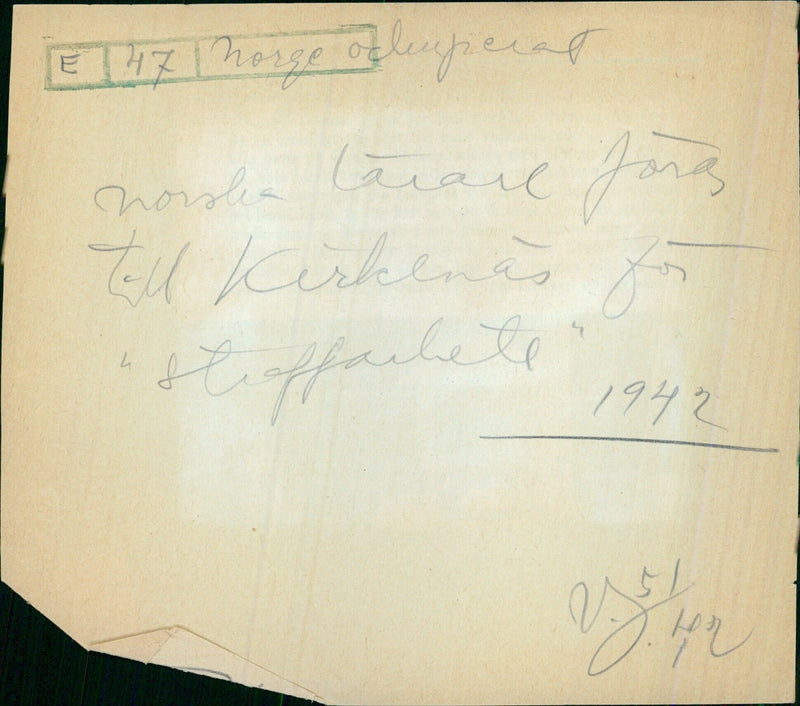 E 47 Norge ockuperat
norska lärare föras
till Kirkenäs för
"straffarbete"
1942
V.J. 51/42